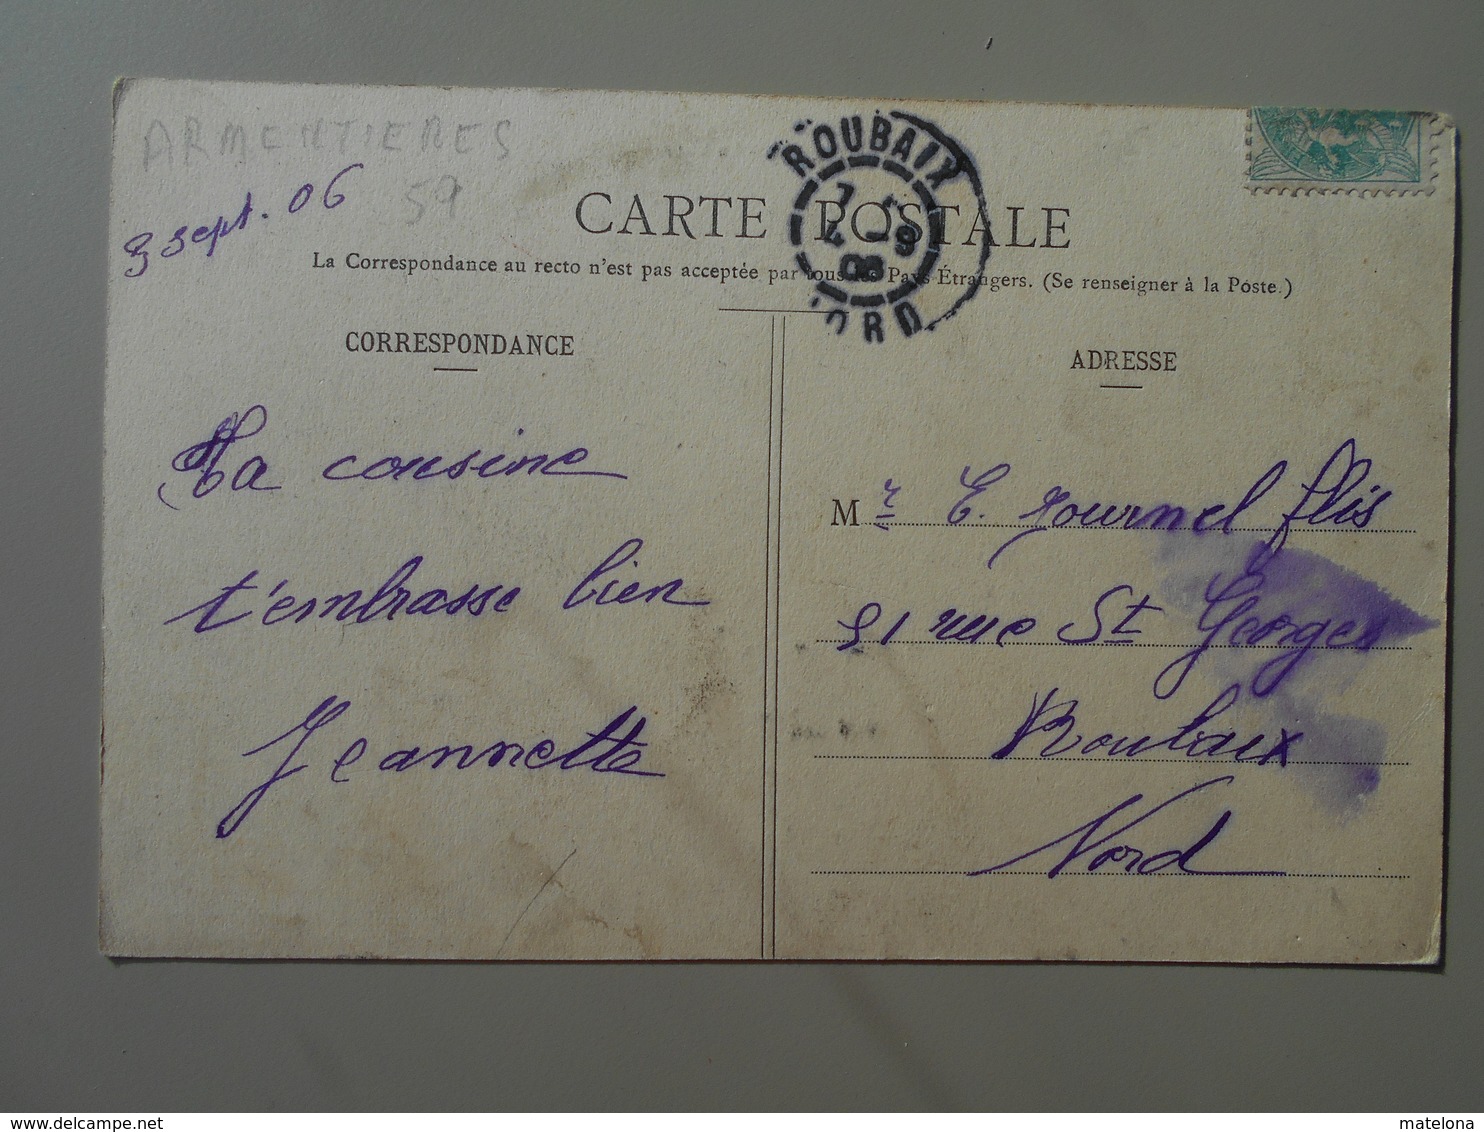 ARMENTIERES
59
3 sept. 06
ROUBAIX
NORD
CARTE POSTALE
La Correspondance au recto n'est pas acceptée par tous les Pays Étrangers. (Se renseigner à la Poste.)
CORRESPONDANCE
Ta cousine
t'embrasse bien
Jeannette
ADRESSE
Mr E. Journel fils
91 rue St Georges
Roubaix
Nord
matelona